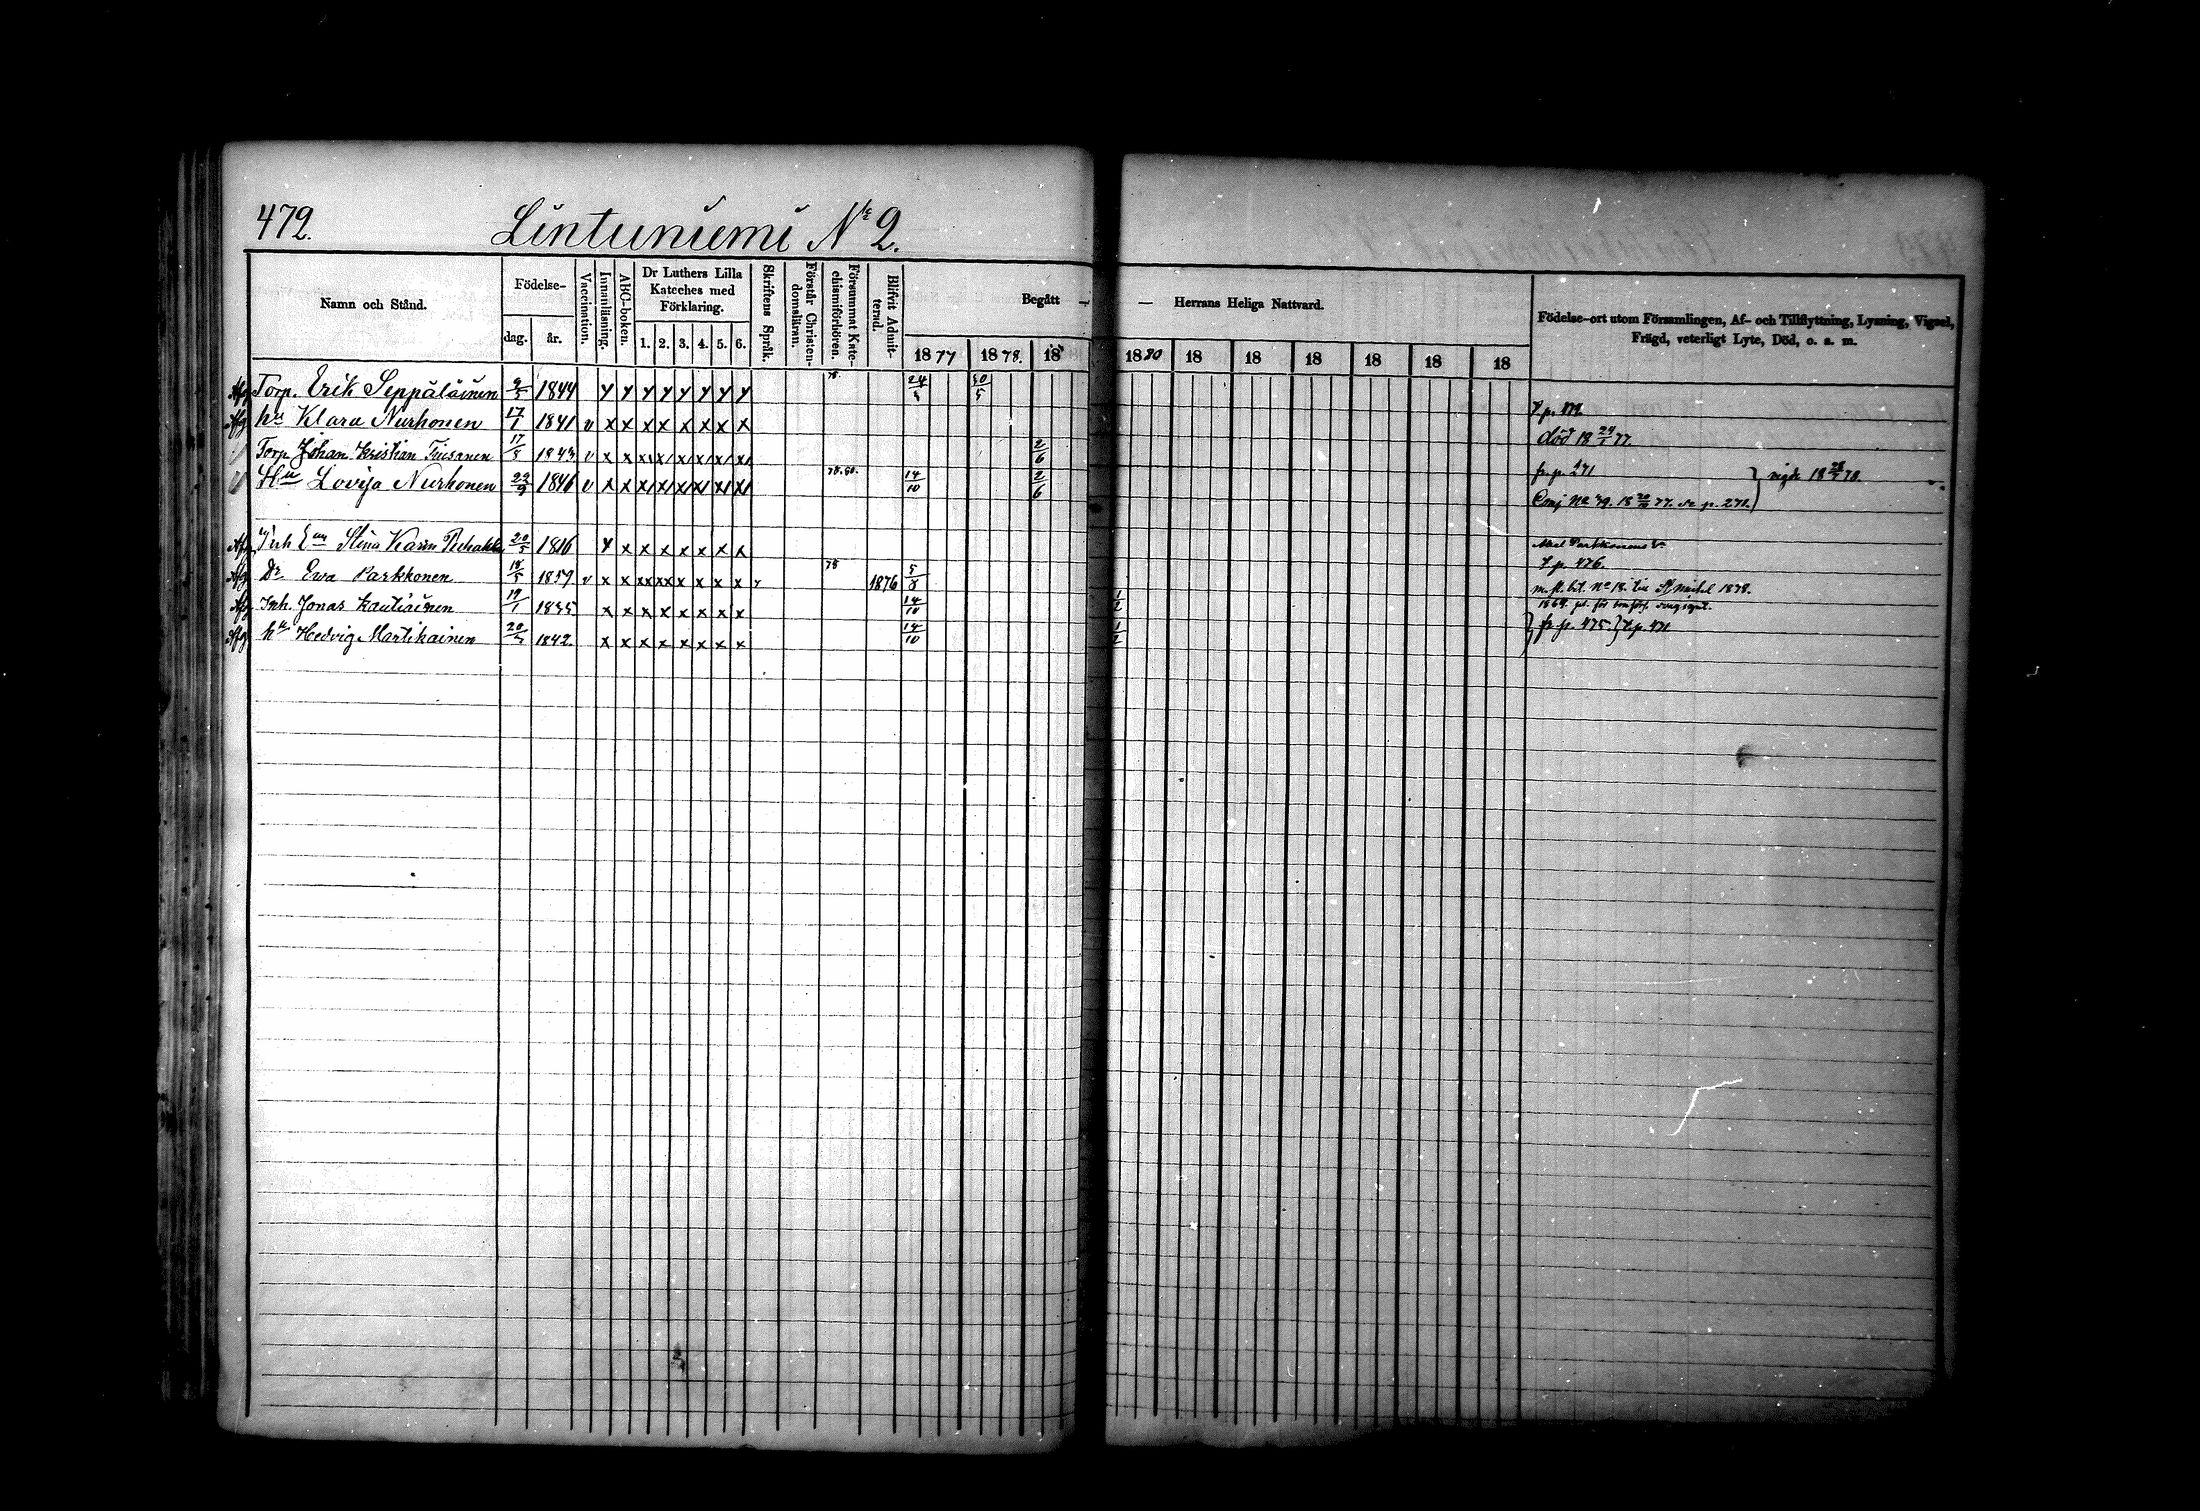 472.
Lintuniemi No 2.
Namn och Stånd.
Födelse-
dag. år.
Vaccination.
Innanläsning.
ABC-boken.
Dr Luthers Lilla
Kateches med
Förklaring.
1. 2. 3. 4. 5. 6.
Skriftens Språk.
Förstår Christen-
domsläran.
Försummat Kate-
chismiförhören.
Blifvit Admit-
terad.
Begått — — Herrans Heliga Nattvard.
1877 1878. 18 1880 18 18 18 18 18 18
Födelse-ort utom Församlingen, Af- och Tillflyttning, Lysning, Vigsel,
Frägd, veterligt Lyte, Död, o. a. m.
Torp. Erik Seppäläinen 1844 y y y y y y y y 78. 30/5
hu Klara Nurhonen 17/1 1841 v x x x x x x x x död 18 24/1 77.
Torp Johan Kristian 17/5 1843 v x x x x x x x x 2/6 fr. p. 271
Hu Lovisa Nurhonen 23/9 1846 v x x x x x x x x 78.80. 14/10 2/6 No 39. p. 271.
vigde 18 78.
Inh Stina Karin 20/5 1816 y x x x x x x x
Dr Ewa Parkkonen 18/5 1859 v x x x x x x x x 78 1876 t. p. 476.
m. fl. bet. No 18. St Michel 1878.
Inh. Jonas Kautiainen 19/1 1835 x x x x x x x x 14/10 1/2 1869.
hu Hedvig Martikainen 1842. x x x x x x x x 14/10 1/2 fr. p. 475. t. p. 471